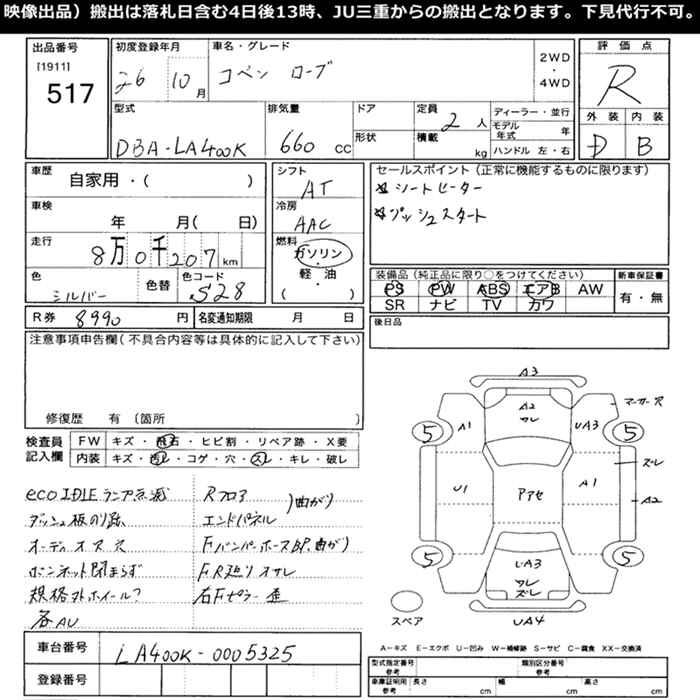 映像出品）搬出は落札日含む4日後13時、JU三重からの搬出となります。下見代行不可。
出品番号
[1911]
517
初度登録年月
26 10月
車名・グレード
コペン ローブ
2WD
・
4WD
評価点
R
外装 内装
D B
型式
DBA-LA400K
排気量
660 cc
ドア
形状
定員 2 人
積載 kg
ディーラー・並行
モデル年式 年
ハンドル 左・右
車歴
自家用・( )
車検
年 月( 日)
走行
8万0千207km
色
シルバー
色替
色コード
S28
シフト
AT
冷房
AAC
燃料
ガソリン
・
軽油
( )
セールスポイント（正常に機能するものに限ります）
シートヒーター
プッシュスタート
装備品（純正品に限り○をつけてください）
PS PW ABS エアB AW
SR ナビ TV カワ
新車保証書
有・無
R券 8990 円
名変通知期限 月 日
後日品
注意事項申告欄（不具合内容等は具体的に記入して下さい）
修復歴 有（箇所 ）
検査員
記入欄
FW キズ・飛石・ヒビ割・リペア跡・X要
内装 キズ・汚レ・コゲ・穴・スレ・キレ・破レ
eco IDLE ランプ点滅
ダッシュ板のり跡
オーディオス穴
ボンネット閉まらず
規格外ホイール?
各AU
Rフロア
エンドパネル
)曲がり
Fバンパーホース BP,曲がり
F,R廻りオサレ
右Fピラー歪
A3
A2
ワレ
マーカー穴
5
A1
UA3
5
スレ
U1
アアセ
A1
A2
5
UA3
ワレ
ズレ
5
UA4
スペア
車台番号
LA400K-0005325
登録番号
A－キズ E－エクボ U－凹み W－補修跡 S－サビ C－腐食 XX－交換済
型式指定番号
参考
類別区分番号
参考
車庫証明用
参考
長さ cm
幅 cm
高さ cm